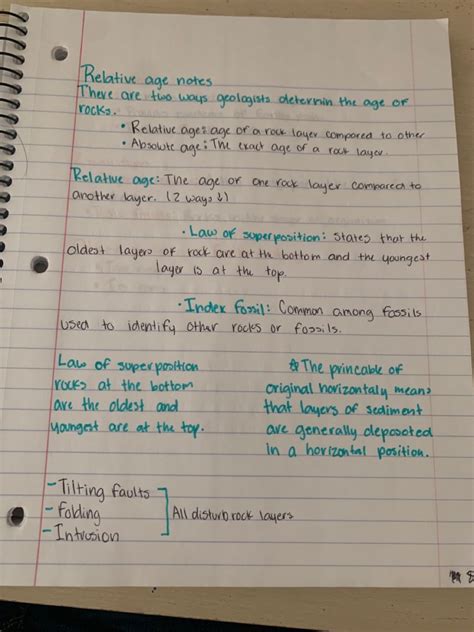 Relative age notes
There are two ways geologists determin the age of
rocks.
• Relative age: age of a rock layer compared to other
• Absolute age: The exact age of a rock layer.
Relative age: The age of one rock layer compared to
another layer. (2 ways ↓)
• Law of superposition: States that the
oldest layers of rock are at the bottom and the youngest
layer is at the top.
• Index fossil: Common among fossils
used to identify other rocks or fossils.
Law of superposition
rocks at the bottom
are the oldest and
youngest are at the top.
The princable of
original horizontaly means
that layers of sediment
are generally deposoted
in a horizontal position.
- Tilting faults
- Folding
- Intrusion
All disturb rock layers